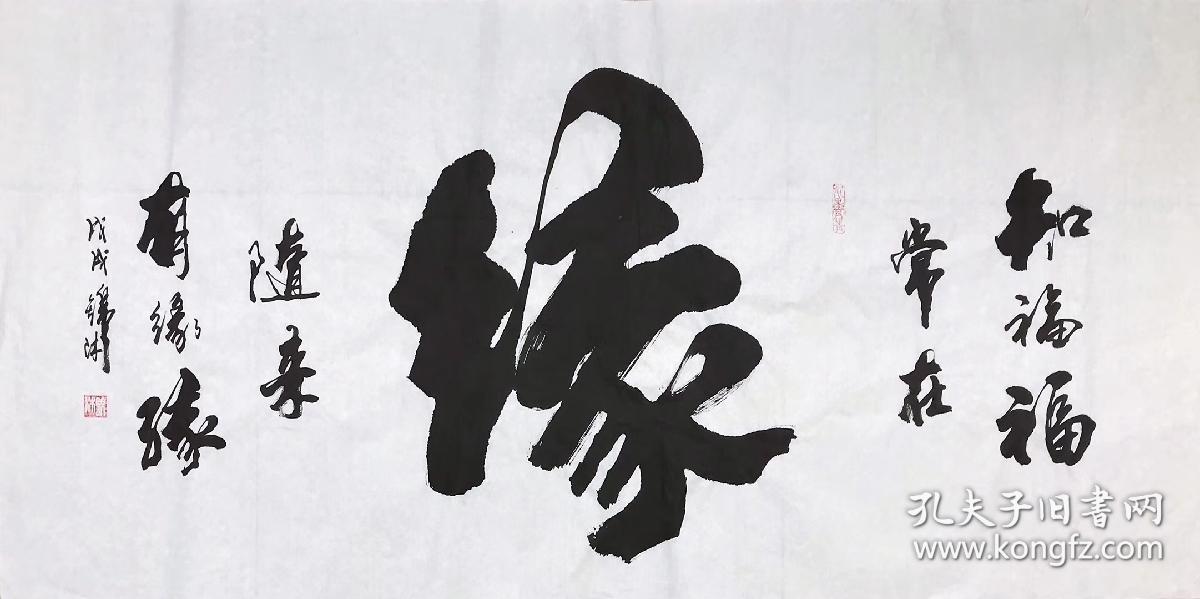 知福福
常在
缘
随来
有缘缘
戊戌锦沐
孔夫子旧书网
www.kongfz.com